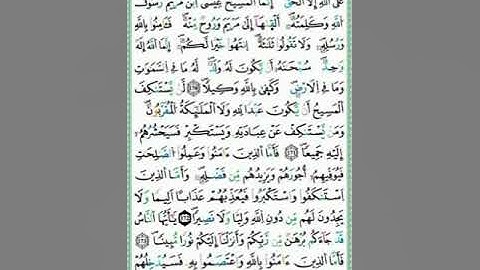 عَلَى ٱللَّهِ إِلَّا ٱلْحَقَّ إِنَّمَا ٱلْمَسِيحُ عِيسَى ٱبْنُ مَرْيَمَ رَسُولُ
ٱللَّهِ وَكَلِمَتُهُۥٓ أَلْقَىٰهَآ إِلَىٰ مَرْيَمَ وَرُوحٌ مِّنْهُ فَـَٔامِنُوا۟ بِٱللَّهِ
وَرُسُلِهِۦ وَلَا تَقُولُوا۟ ثَلَٰثَةٌ ٱنتَهُوا۟ خَيْرًا لَّكُمْ إِنَّمَا ٱللَّهُ إِلَٰهٌ
وَٰحِدٌ سُبْحَٰنَهُۥٓ أَن يَكُونَ لَهُۥ وَلَدٌ لَّهُۥ مَا فِى ٱلسَّمَٰوَٰتِ
وَمَا فِى ٱلْأَرْضِ وَكَفَىٰ بِٱللَّهِ وَكِيلًا ١٧١ لَّن يَسْتَنكِفَ
ٱلْمَسِيحُ أَن يَكُونَ عَبْدًا لِّلَّهِ وَلَا ٱلْمَلَٰٓئِكَةُ ٱلْمُقَرَّبُونَ
وَمَن يَسْتَنكِفْ عَنْ عِبَادَتِهِۦ وَيَسْتَكْبِرْ فَسَيَحْشُرُهُمْ
إِلَيْهِ جَمِيعًا ١٧٢ فَأَمَّا ٱلَّذِينَ ءَامَنُوا۟ وَعَمِلُوا۟ ٱلصَّٰلِحَٰتِ
فَيُوَفِّيهِمْ أُجُورَهُمْ وَيَزِيدُهُم مِّن فَضْلِهِۦ وَأَمَّا ٱلَّذِينَ
ٱسْتَنكَفُوا۟ وَٱسْتَكْبَرُوا۟ فَيُعَذِّبُهُمْ عَذَابًا أَلِيمًا وَلَا
يَجِدُونَ لَهُم مِّن دُونِ ٱللَّهِ وَلِيًّا وَلَا نَصِيرًا ١٧٣ يَٰٓأَيُّهَا ٱلنَّاسُ
قَدْ جَآءَكُم بُرْهَٰنٌ مِّن رَّبِّكُمْ وَأَنزَلْنَآ إِلَيْكُمْ نُورًا مُّبِينًا ١٧٤
فَأَمَّا ٱلَّذِينَ ءَامَنُوا۟ بِٱللَّهِ وَٱعْتَصَمُوا۟ بِهِۦ فَسَيُدْخِلُهُمْ